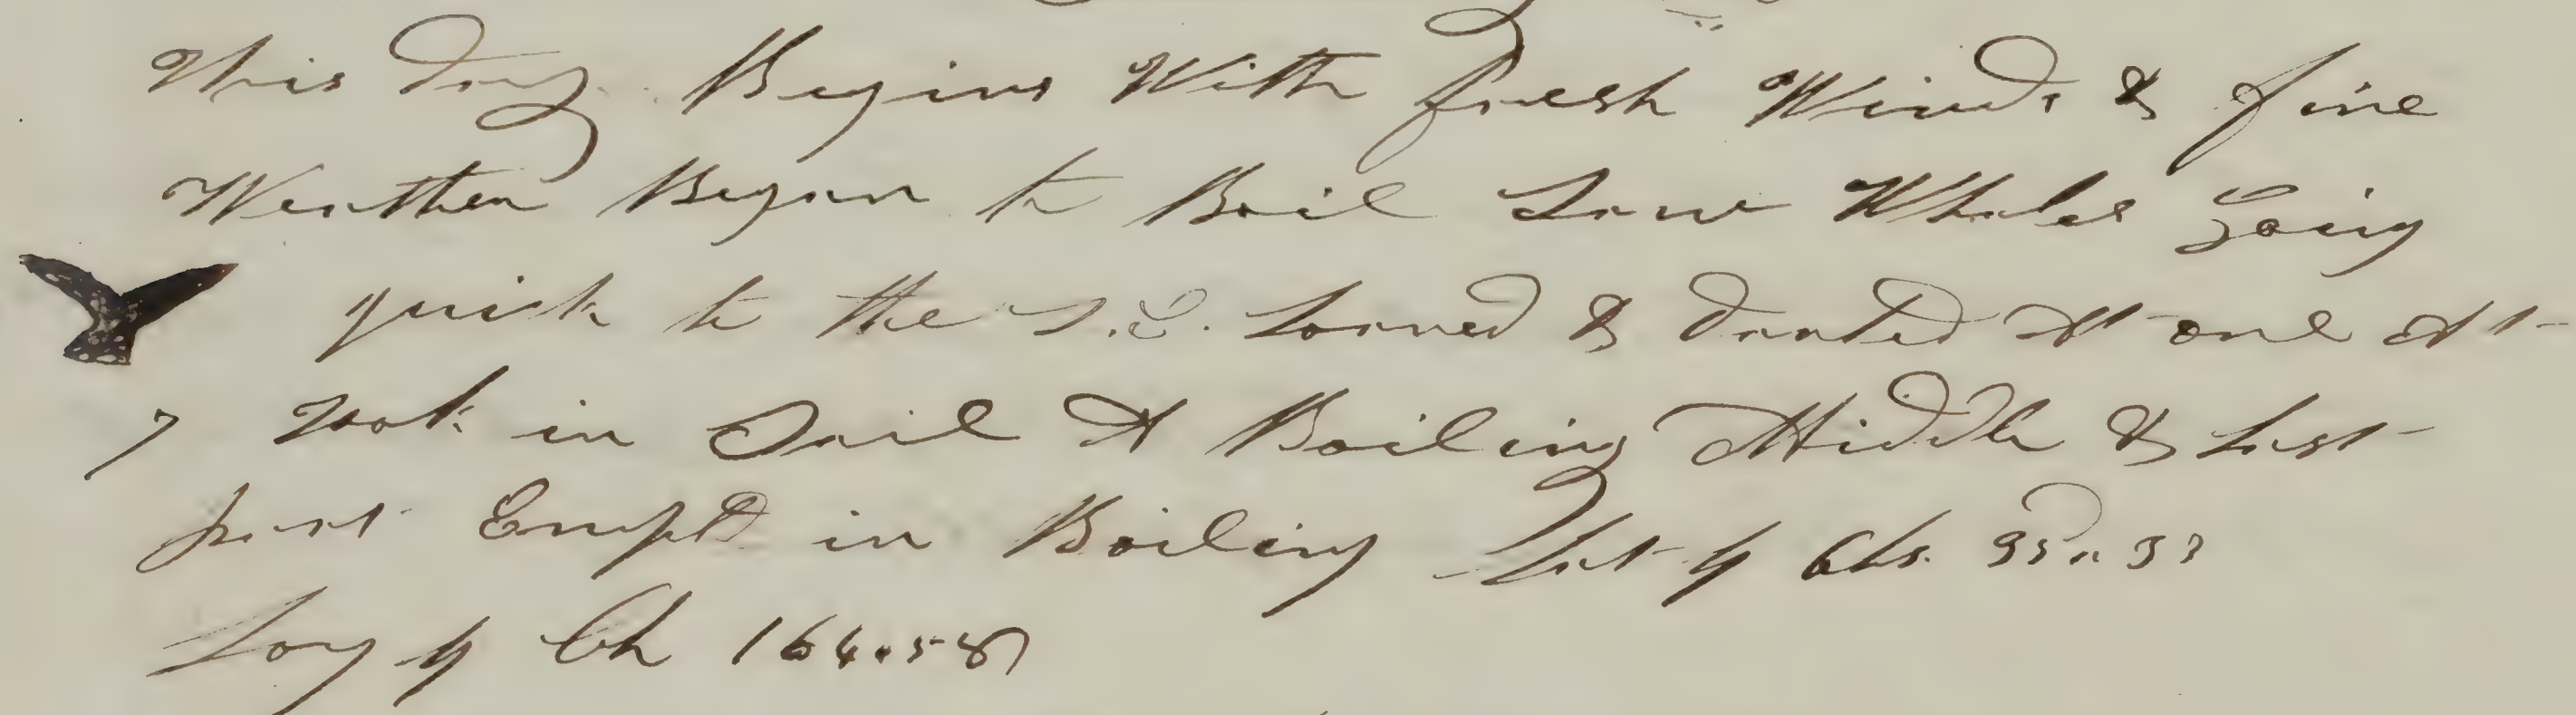 This day Begins With fresh Winds & fine
Weather Began to Boil Saw Whales Going
quick to the S.E. Loared & darted At one At
7 Took in Sail A Boiling Middle & Last
part Empl^d in Boiling Lat by Obs. 35..33
Long by Ch 164.58